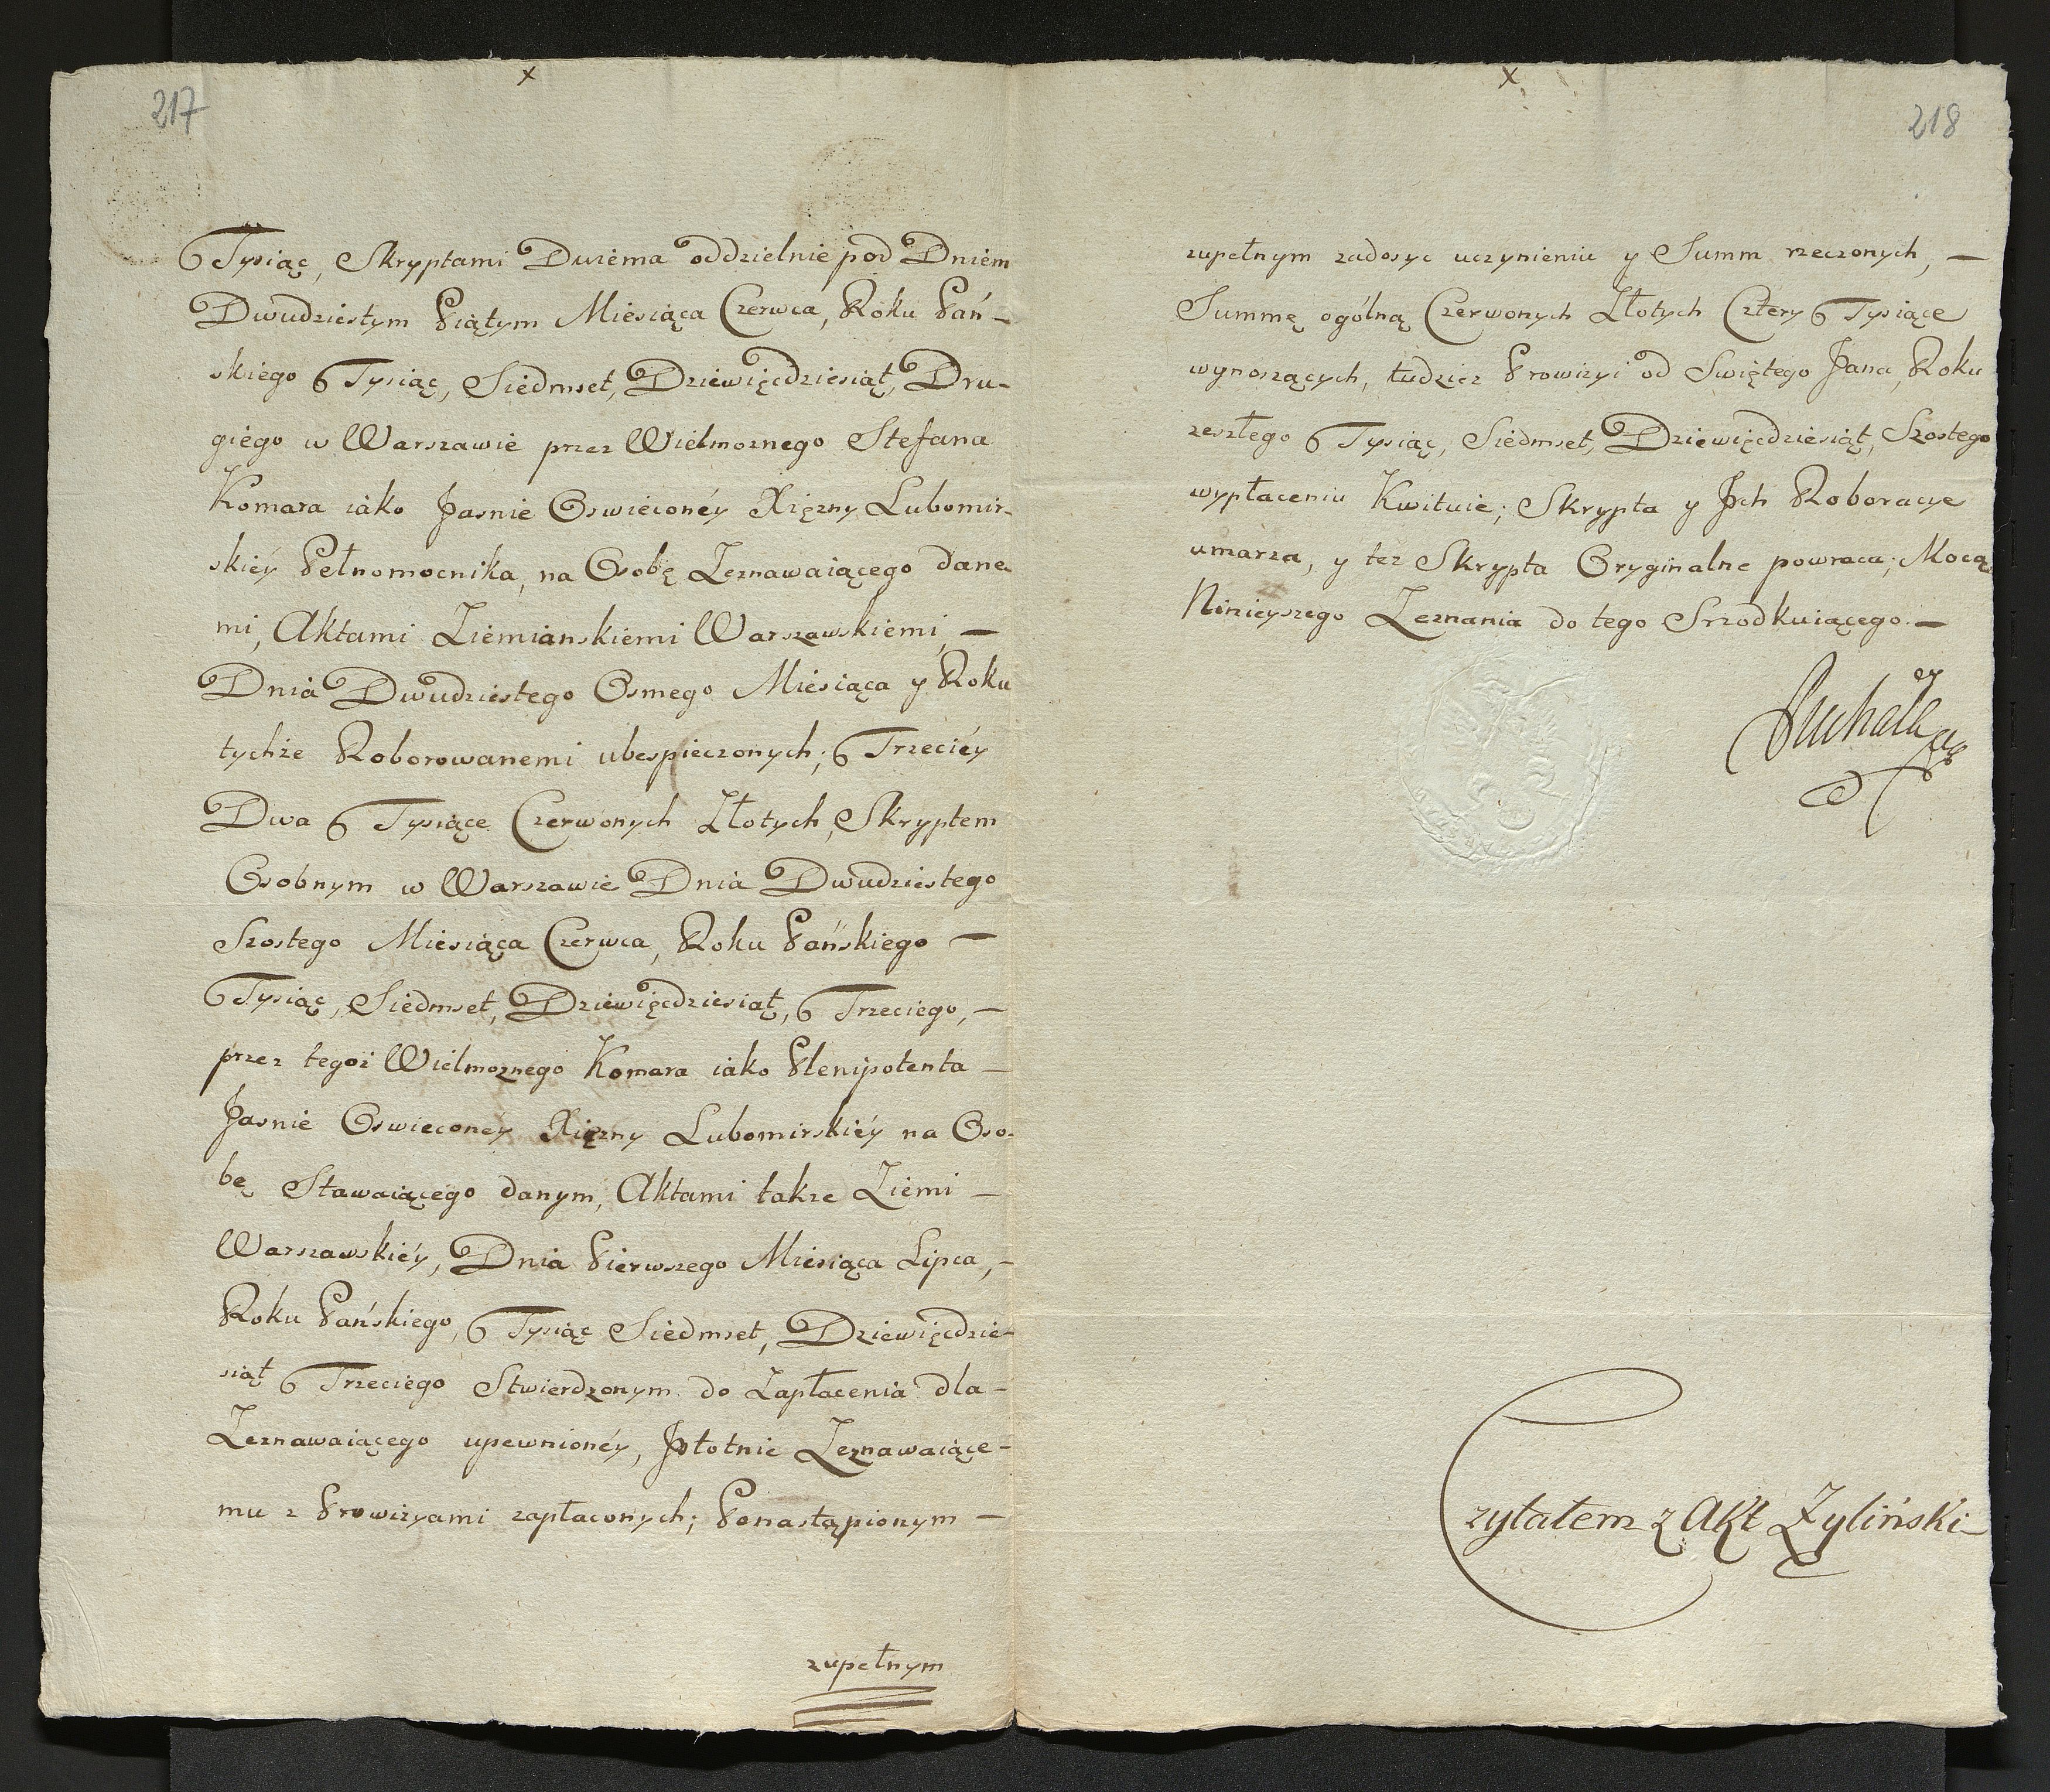 x
217
Tysiąc, Skryptami Dwiema oddzielnie pod Dniem
Dwudziestym Piątym Miesiąca Czerwca, Roku Pań-
skiego Tysiąc, Siedmset, Dziewięćdziesiąt, Dru-
giego w Warszawie przez Wielmoznego Stefana
Komara iako Jasnie Oswieconéy Xięzny Lubomir-
skiéy Pełnomocnika, na Osobę Zeznawaiącego dane
mi, Aktami Ziemianskiemi Warszawskiemi, —
Dnia Dwudziestego Osmego Miesiąca y Roku
tychże Roborowanemi ubespieczonych; Trzeciéy
Dwa Tysiące Czerwonych Złotych, Skryptem
Osobnym w Warszawie Dnia Dwudziestego
Szostego Miesiąca Czerwca, Roku Pańskiego —
Tysiąc, Siedmset, Dziewięćdziesiąt, Trzeciego, —
przez tegoż Wielmoznego Komara iako Plenipotenta —
Jasnie Oswieconey Xięzny Lubomirskiéy na Oso-
bę Stawaiącego danym, Aktami takze Ziemi —
Warszawskiéy, Dnia Pierwszego Miesiąca Lipca, -
Roku Pańskiego, Tysiąc Siedmset, Dziewięćdzie-
siąt Trzeciego Stwierdzonym do Zapłacenia dla -
Zeznawaiącego upewnionéy, Istotnie Zeznawaiące-
mu z Prowizyami zapłaconych; Ponastąpionym —
zupełnym
x
218
zupełnym zadosyc uczynieniu y Summ rzeczonych, —
Summę ogólną Czerwonych Złotych Cztery Tysiące
wynoszących, tudzież Prowizyi od Swiętego Jana, Roku
zeszłego Tysiąc, Siedmset, Dziewięćdziesiąt, Szostego
wypłaceniu Kwituie; Skrypta y Jch Roboracye
umarza, y tez Skrypta Oryginalne powraca; Mocą
Ninieyszego Zeznania do tego Srzodkuiącego. —
Czytałem z Akt Żyliński